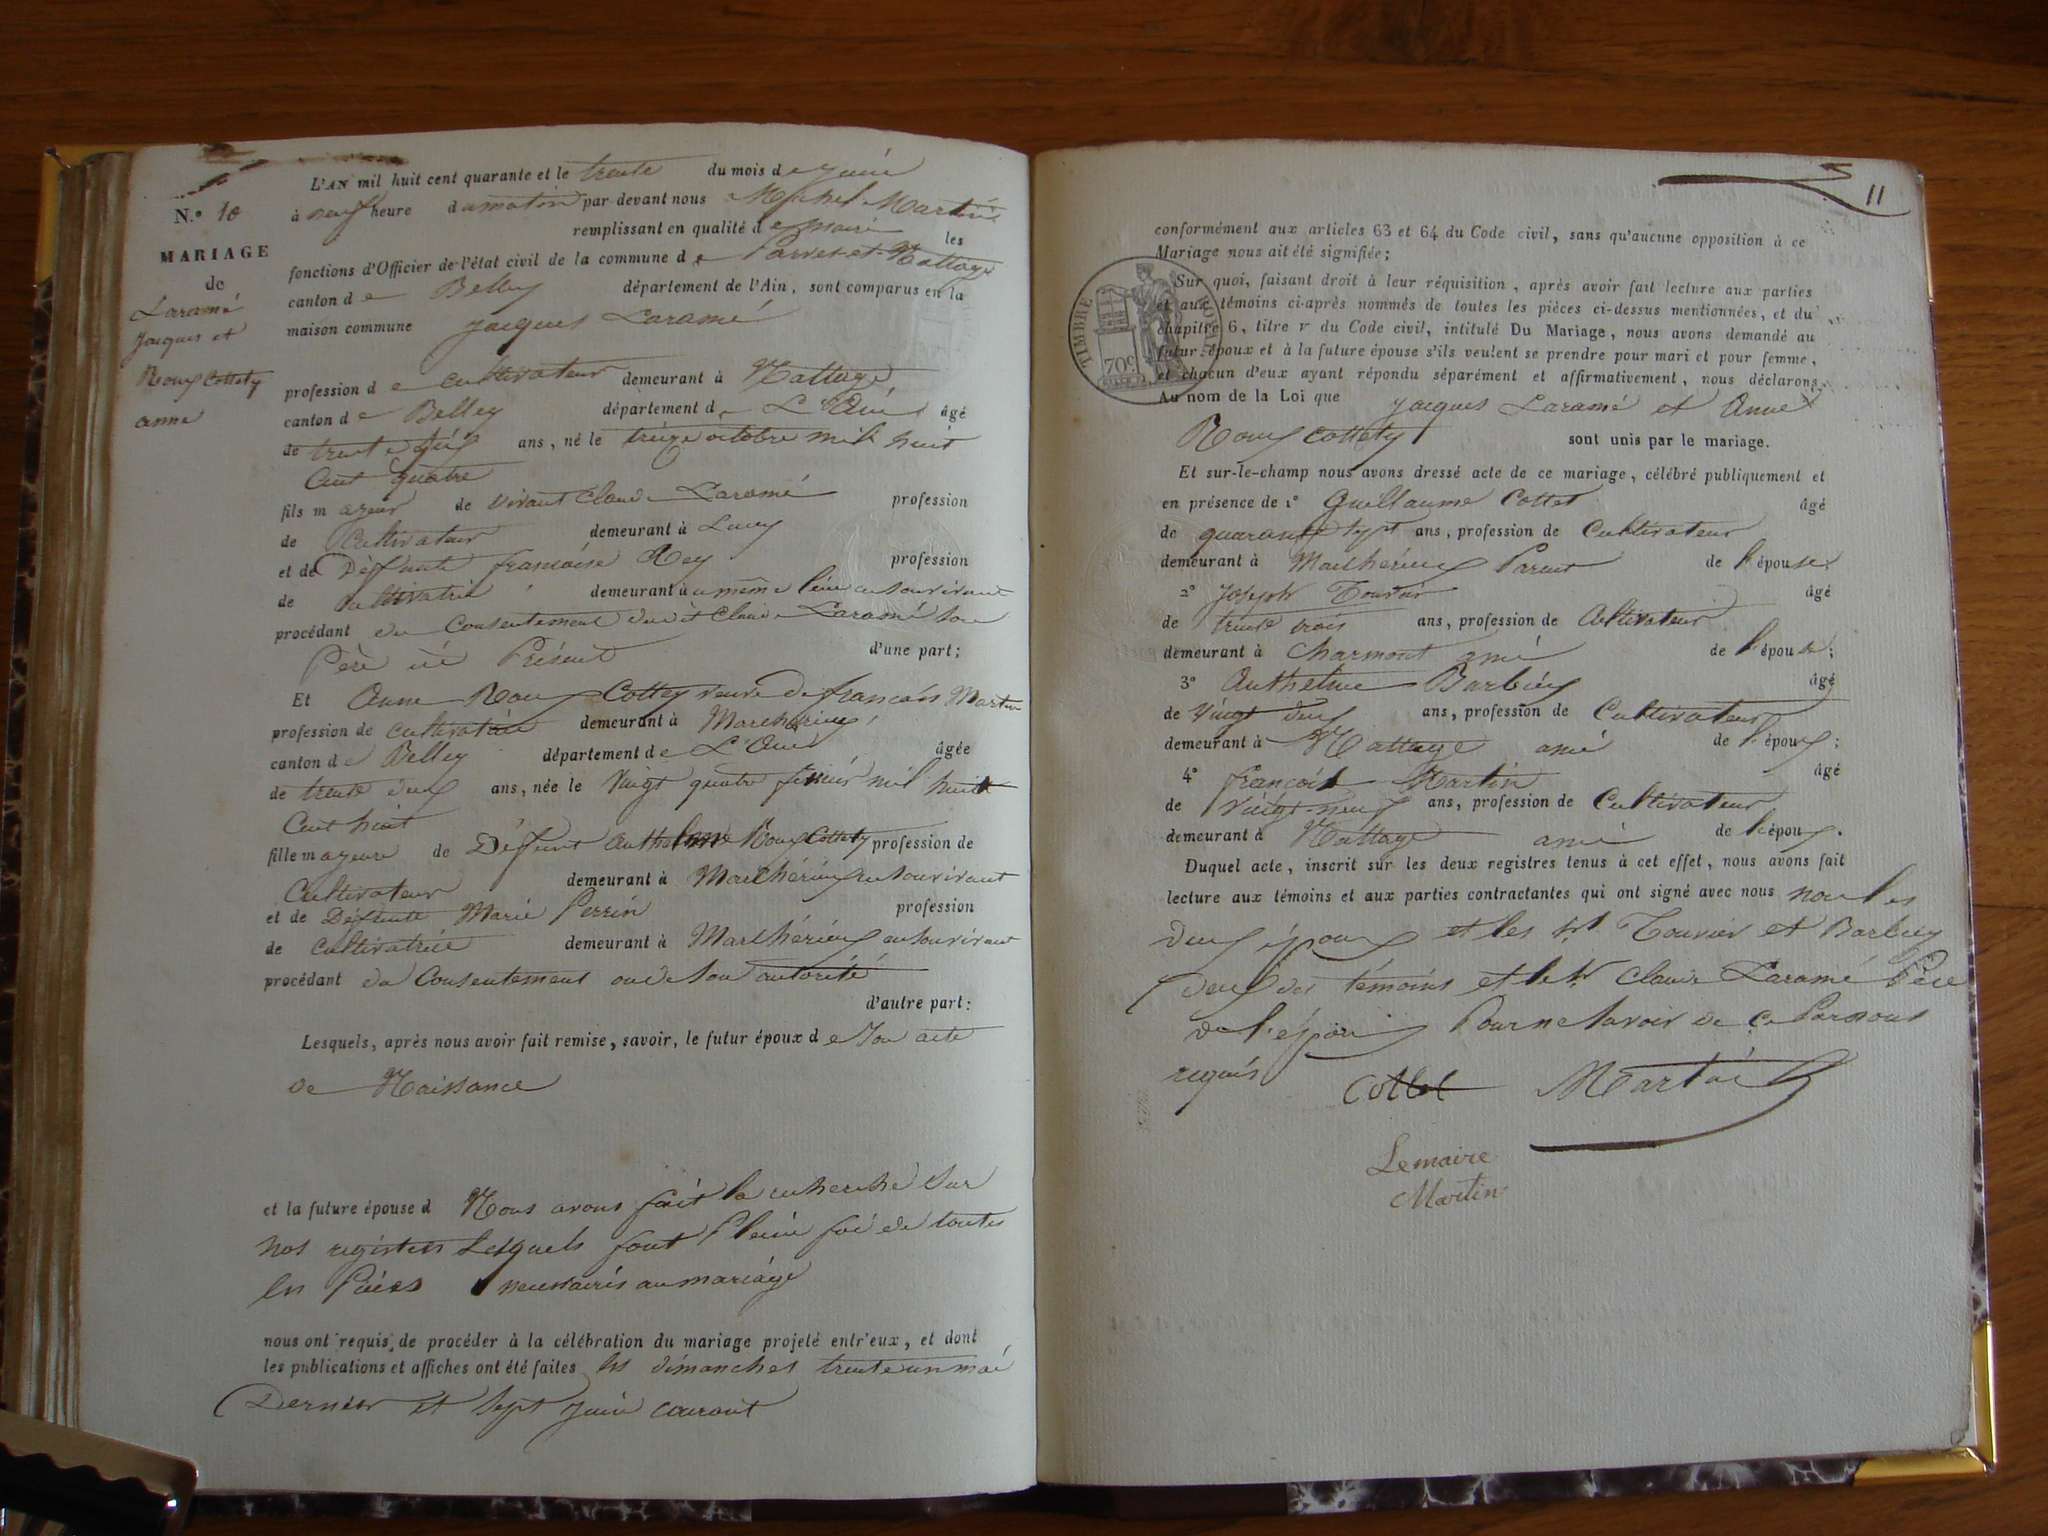 N.º 10
MARIAGE
de
Laramé
Jacques et
Roux Cottety
anne
L'AN mil huit cent quarante et le trente du mois de Juin
à neuf heure du matin par-devant nous Michel Martin
remplissant en qualité de maire les
fonctions d'Officier de l'état civil de la commune de Parves-et-Nattage
canton de Belley département de l'Ain, sont comparus en la
maison commune Jacques Laramé
profession de cultivateur demeurant à Nattage
canton de Belley département de L'Ain âgé
de trente six ans, né le treize octobre mil huit
Cent quatre
fils majeur de vivant Claude Laramé profession
de Cultivateur demeurant à Lucey
et de Défunte françoise Rey profession
de Cultivatrice demeurant au même lieu en son vivant
procédant du Consentement dudit Claude Laramé son
Père ici Présent d'une part;
Et Anne Roux Cottety veuve de françois Martin
profession de cultivatrice demeurant à Marchérieux
canton de Belley département de L'Ain âgée
de trente deux ans, née le vingt quatre février mil huit
Cent huit
fille majeure de Défunt Anthelme Roux Cottety profession de
Cultivateur demeurant à Marchérieux en son vivant
et de Défunte Marie Perrin profession
de cultivatrice demeurant à Marchérieux en son vivant
procédant du Consentement ou de son autorité
d'autre part:
Lesquels, après nous avoir fait remise, savoir, le futur époux de son acte
de Naissance
et la future épouse d Nous avons fait la recherche sur
nos registres lesquels font pleine foi de toutes
les Pièces necessaires au mariage
nous ont requis de procéder à la célébration du mariage projeté entr'eux, et dont
les publications et affiches ont été faites les dimanches trente un mai
Dernier et sept juin courant
11
conformément aux articles 63 et 64 du Code civil, sans qu'aucune opposition à ce
Mariage nous ait été signifiée;
TIMBRE ROYAL
70c
Sur quoi, faisant droit à leur réquisition, après avoir fait lecture aux parties
et aux témoins ci-après nommés de toutes les pièces ci-dessus mentionnées, et du
chapitre 6, titre v du Code civil, intitulé Du Mariage, nous avons demandé au
futur époux et à la future épouse s'ils veulent se prendre pour mari et pour femme,
et chacun d'eux ayant répondu séparément et affirmativement, nous déclarons,
Au nom de la Loi que Jacques Laramé et Anne
Roux Cottety sont unis par le mariage.
Et sur-le-champ nous avons dressé acte de ce mariage, célébré publiquement et
en présence de 1º Guillaume Cottet âgé
de quarante sept ans, profession de Cultivateur
demeurant à Marchérieux Parent de l'épouse.
2º Joseph Tournier âgé
de trente trois ans, profession de Cultivateur
demeurant à Charmont ami de l'épouse;
3º Anthelme Barbier âgé
de vingt deux ans, profession de Cultivateur
demeurant à Nattage ami de l'époux;
4º françois Martin âgé
de vingt-neuf ans, profession de Cultivateur
demeurant à Nattage ami de l'époux.
Duquel acte, inscrit sur les deux registres tenus à cet effet, nous avons fait
lecture aux témoins et aux parties contractantes qui ont signé avec nous non les
deux époux et les srs Tournier et Barbier
deux des témoins et le sr Claude Laramé Père
de l'époux Pour ne savoir de ce
requis Cottet Martin
Lemaire
Martin